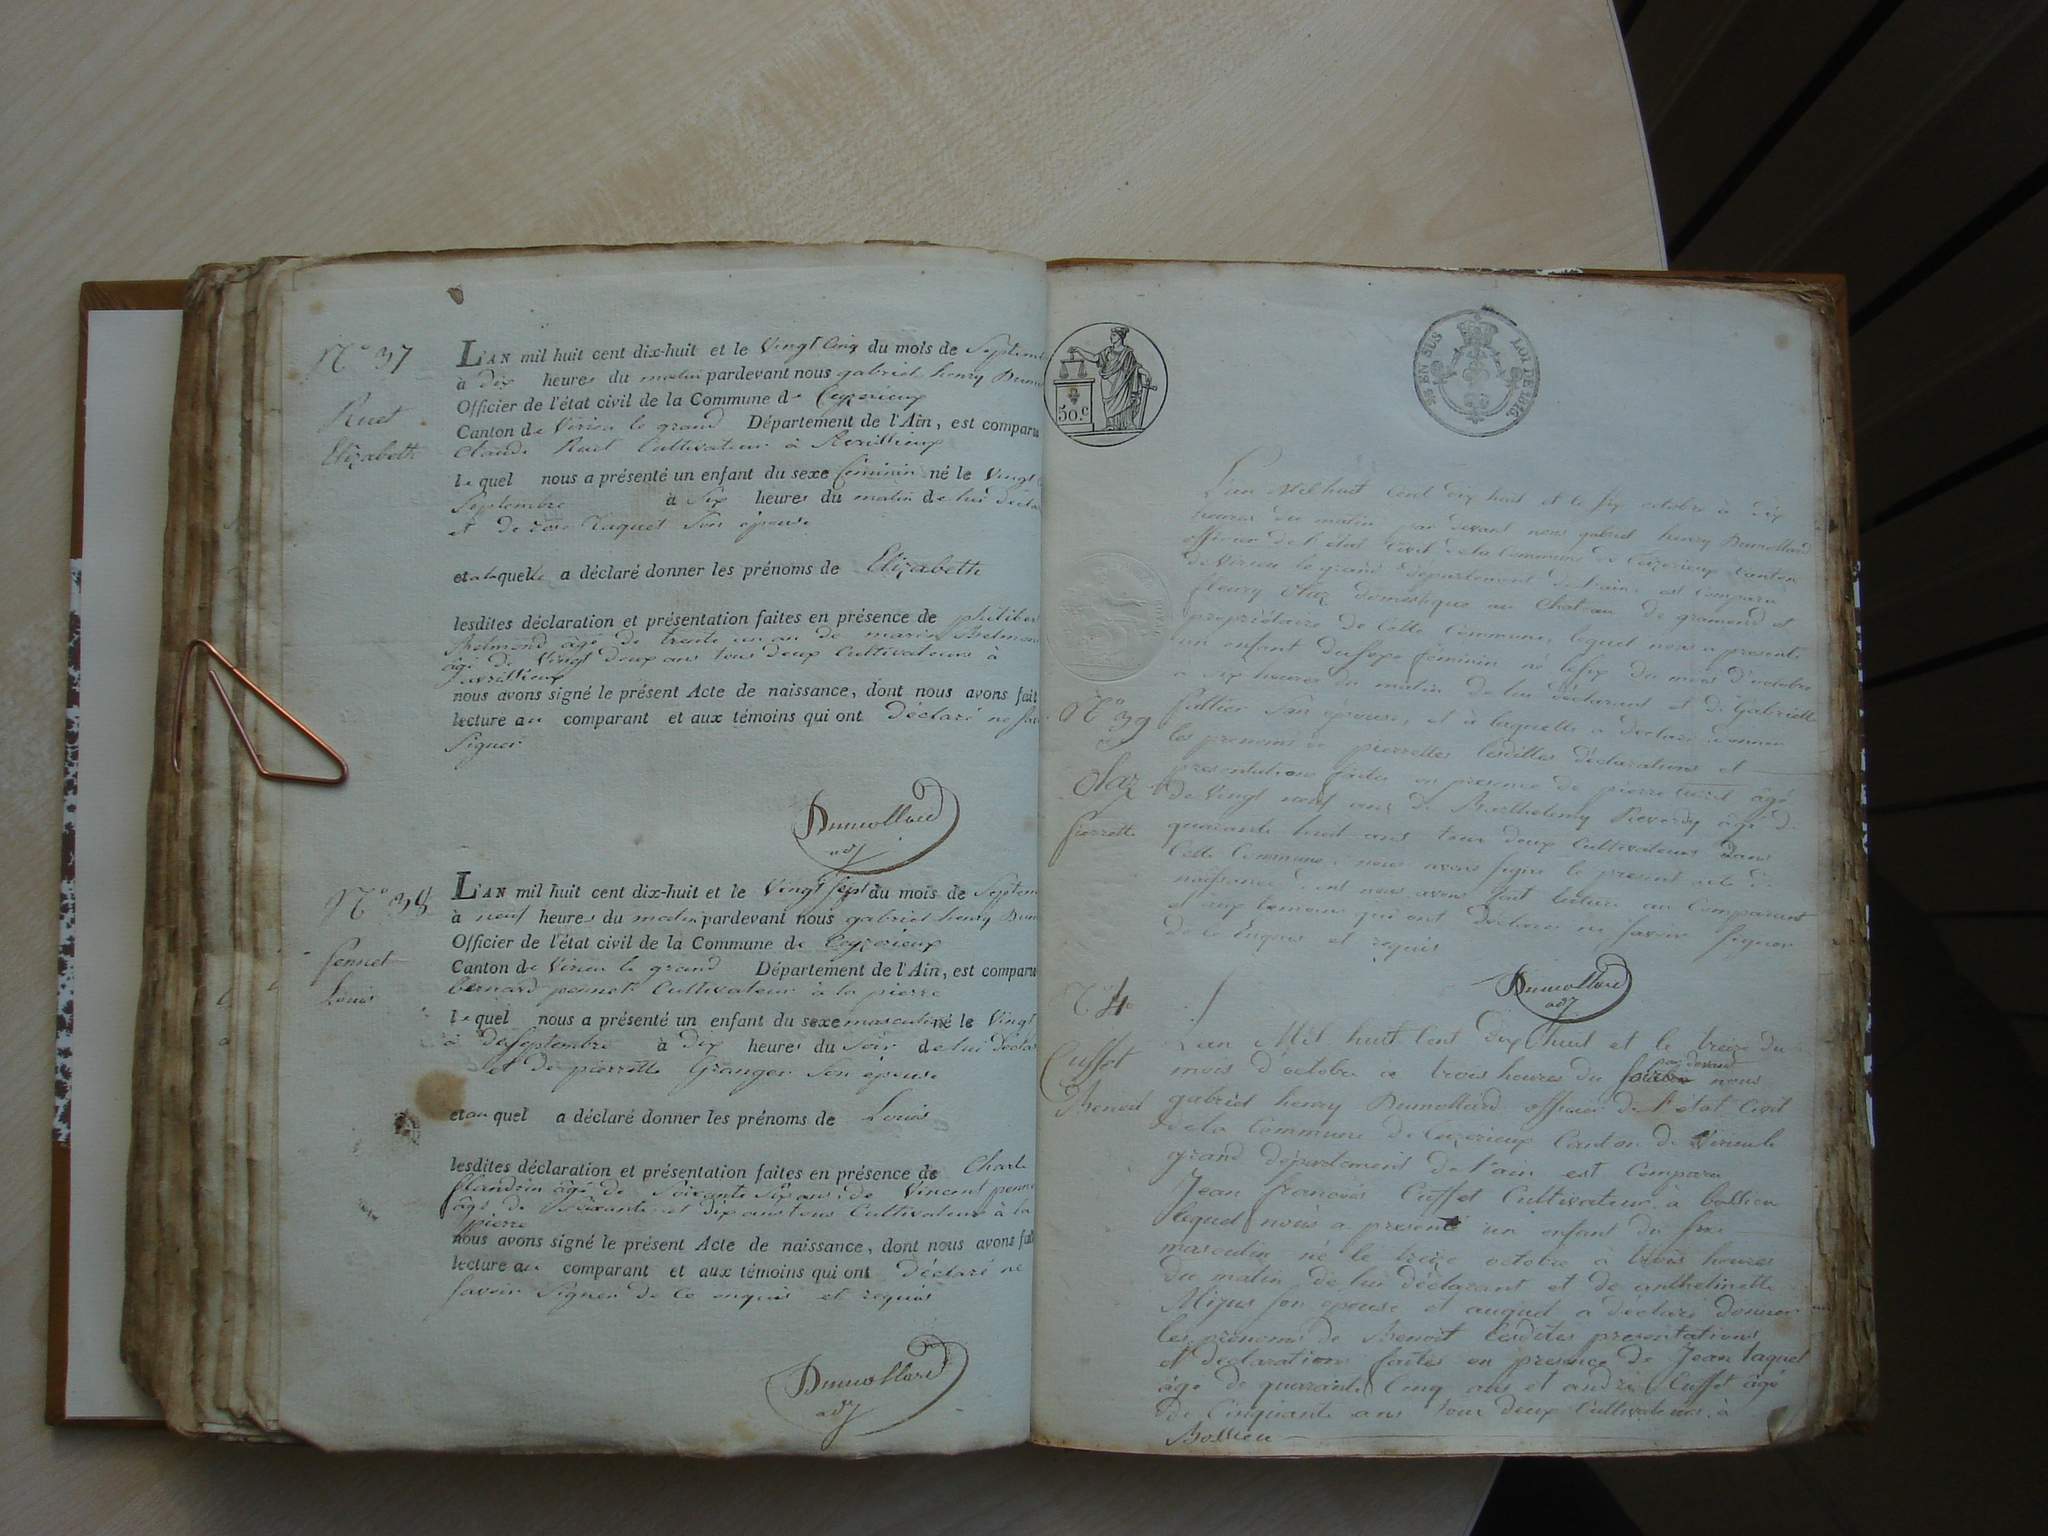 N° 37
Ruet
Elizabeth
L'AN mil huit cent dix-huit et le Vingt Cinq du mois de Septem
à dix heures du matin pardevant nous gabriel henry Dumo
Officier de l'état civil de la Commune de Ceyzerieux
Canton de Virieu le grand Département de l'Ain, est comparu
Claude Ruet Cultivateur à Avrillieux
lequel nous a présenté un enfant du sexe féminin né le Vingt
Septembre à Six heures du matin de lui décla
et de Taquet Son épouse
et a laquelle a déclaré donner les prénoms de Elizabeth
lesdites déclaration et présentation faites en présence de philiber
Belmond âgé de trente un an de marin Belmon
âgé de Vingt deux ans tous deux Cultivateurs à
avrillieux
nous avons signé le présent Acte de naissance, dont nous avons fait
lecture au comparant et aux témoins qui ont Déclaré ne sav
Signer
Dumollard
adj
N° 38
pennet
Louis
L'AN mil huit cent dix-huit et le Vingt Sept du mois de Septem
à neuf heures du matin pardevant nous gabriel henry Dum
Officier de l'état civil de la Commune de Ceyzerieux
Canton de Virieu le grand Département de l'Ain, est comparu
bernard pennet Cultivateur à la pierre
lequel nous a présenté un enfant du sexe masculin né le Vingt
Septembre à dix heures du Soir de lui décla
et de pierrette Granger Son épouse
et au quel a déclaré donner les prénoms de Louis
lesdites déclaration et présentation faites en présence de Charle
flandrin âgé de Soixante Six ans, de Vincent penne
âgé de Soixante et dix ans tous Cultivateurs à la
pierre
nous avons signé le présent Acte de naissance, dont nous avons fai
lecture au comparant et aux témoins qui ont déclaré ne
savoir Signer de ce enquis et requis
Dumollard
adj
50.C
EN SUS
LOI DE 1816
N° 39
Olaz
pierrette
L'an Mil huit Cent dix huit et le six octobre à dix
heures du matin par devant nous gabriel henry Dumollard
officier de l'état Civil de la Commune de Ceyzerieux Canton
de Virieu le grand département de l'ain, est comparu
fleury Olaz domestique au Chateau de gramond et
propriétaire de Cette Commune, lequel nous a présenté
un enfant du sexe féminin né le six du mois d'octobre
à six heures du matin de lui déclarant et de Gabrielle
fallier Son épouse, et à laquelle a déclaré donner
les prenoms de pierrettes lesdittes déclarations et
presentations faites en presence de pierre âgé
de Vingt neuf ans de Barthelemy Reverdy âgé de
quarante huit ans tous deux Cultivateurs dans
Cette Commune, nous avons signé le present acte de
naissance dont nous avons fait lecture au Comparant
et aux temoins qui ont déclaré ne savoir signer
de ce Enquis et requis
Dumollard
adj
N° 4
Cuffet
Benoit
L'an Mil huit Cent dix huit et le treize du
mois d'octobre à trois heures du par devant nous
gabriel henry Dumollard officier de l'état Civil
de la Commune de Ceyzerieux Canton de Virieu le
grand département de l'ain est Comparu
Jean françois Cuffet Cultivateur à bollieu
lequel nous a présenté un enfant du sexe
masculin né le treize octobre à trois heures
du matin de lui déclarant et de anthelmette
Mizus son épouse et auquel a déclaré donner
les prenoms de Benoit lesdites presentations
et déclarations faites en presence de Jean taquet
âgé de quarante Cinq ans et andré Cuffet âgé
de Cinquante ans tous deux Cultivateurs à
Bollieu